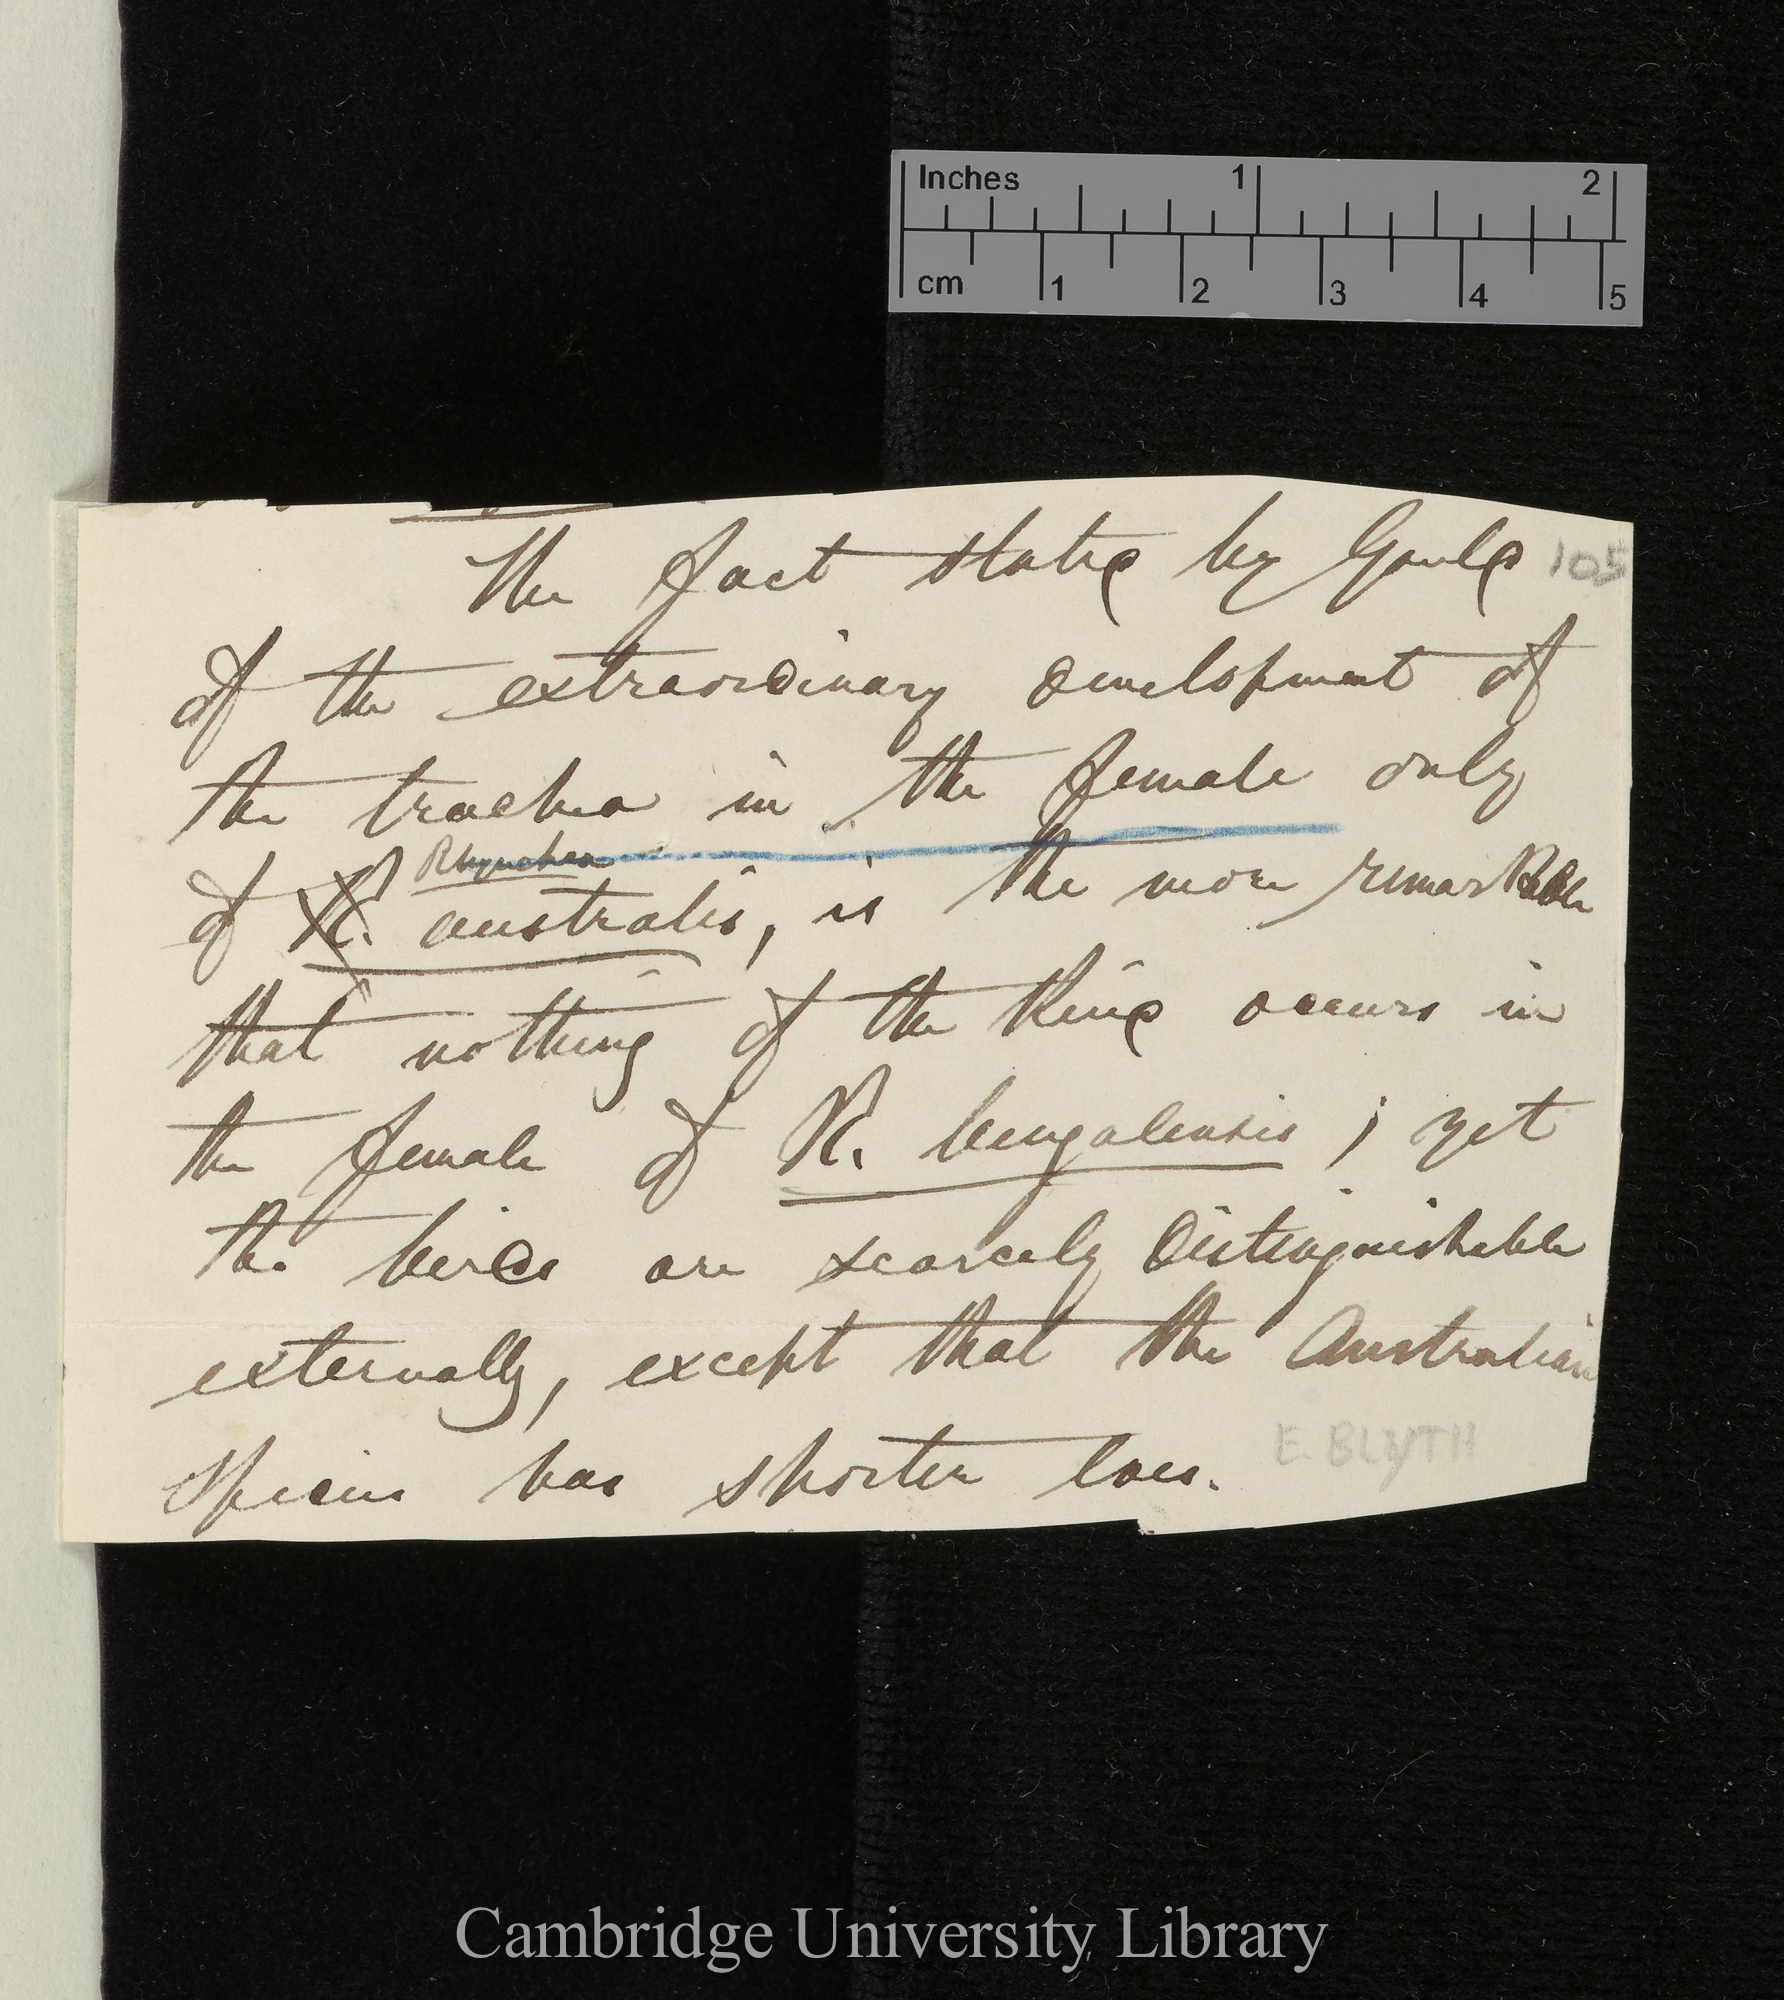 Inches 1 2
cm 1 2 3 4 5
The fact stated by Gould 105
of the extraordinary development of
the trachea in the female only
Rhynchea
of R. australis, is the more remarkable
that nothing of the kind occurs in
the female of R. bengalensis; yet
the birds are scarcely distinguishable
externally, except that the Australian
species has shorter toes.
E. BLYTH
Cambridge University Library